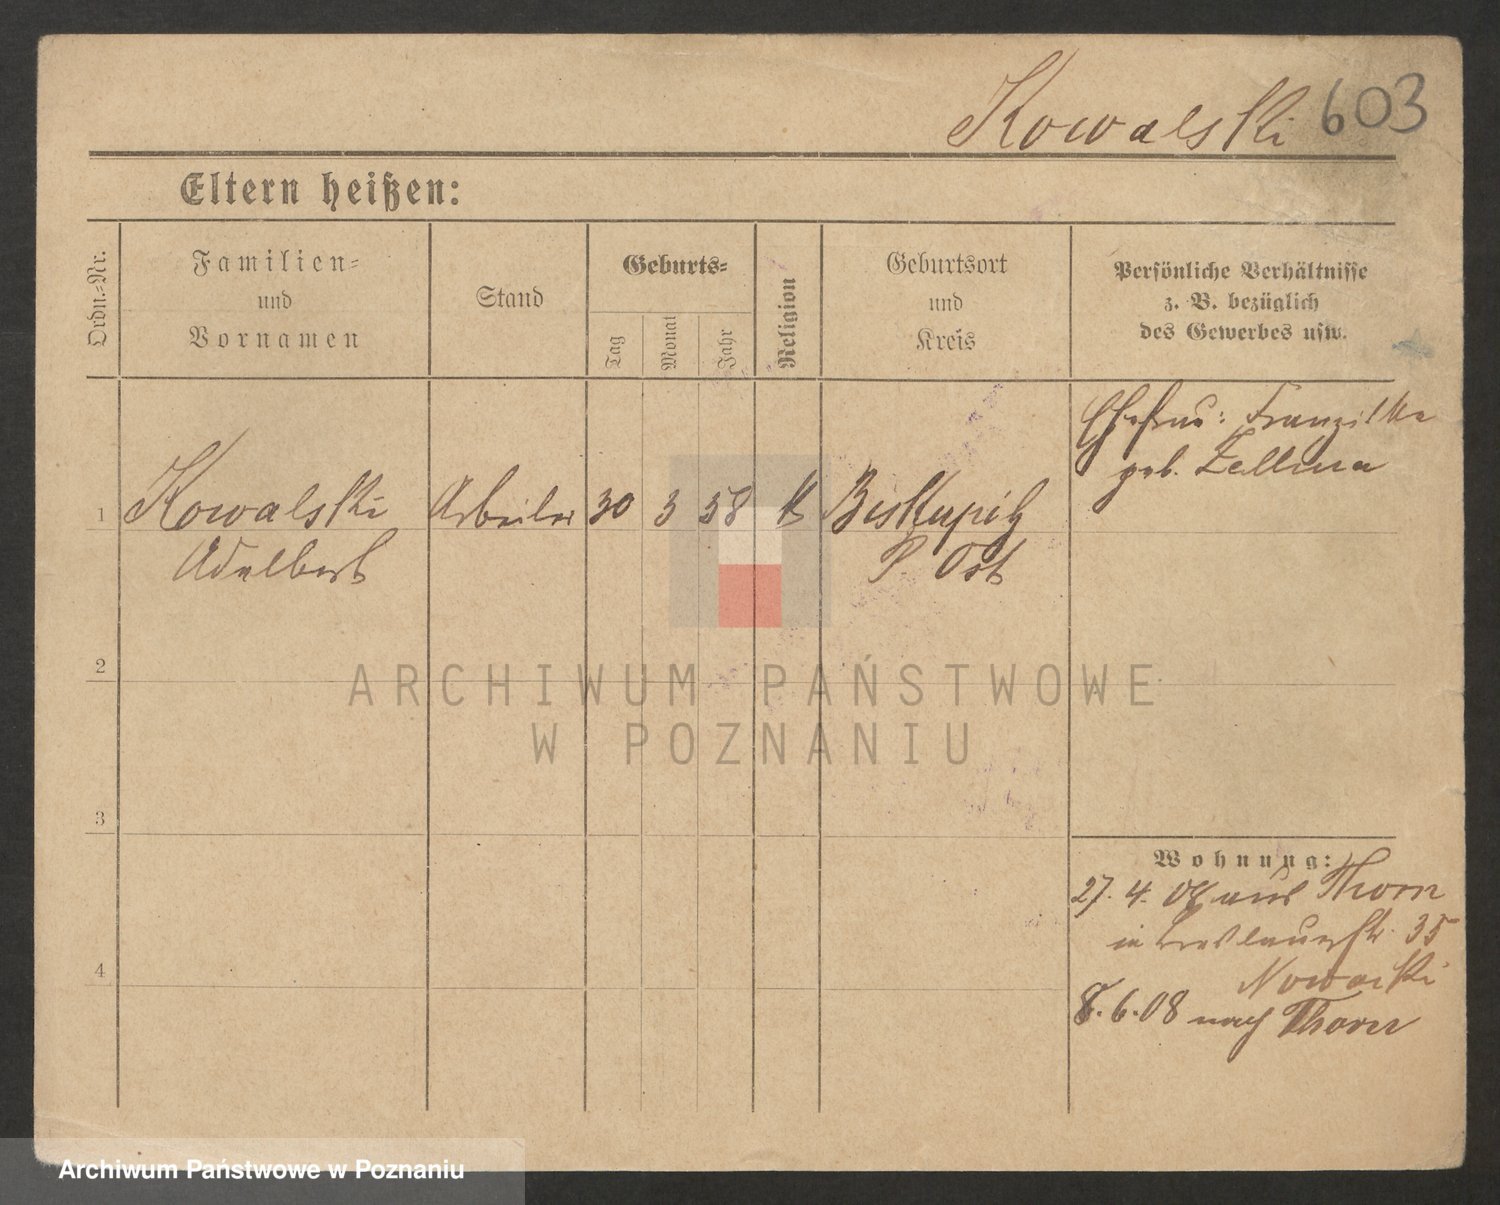 Kowalski 603
Eltern heißen:
Ordn.-Nr.
Familien-
und
Vornamen
Stand
Geburts-
Tag
Monat
Jahr
Religion
Geburtsort
und
Kreis
Persönliche Verhältnisse
z. B. bezüglich
des Gewerbes usw.
Ehefrau: Franziska
geb. Zellma
1 Kowalski Arbeiter 30 3 58 k Biskupitz
Adalbert P. Ost
2
3
4
Wohnung:
27. 4. 08 aus Thorn
in Breslauerstr. 35
Nowacki
8. 6. 08 nach Thorn
ARCHIWUM PAŃSTWOWE
W POZNANIU
Archiwum Państwowe w Poznaniu